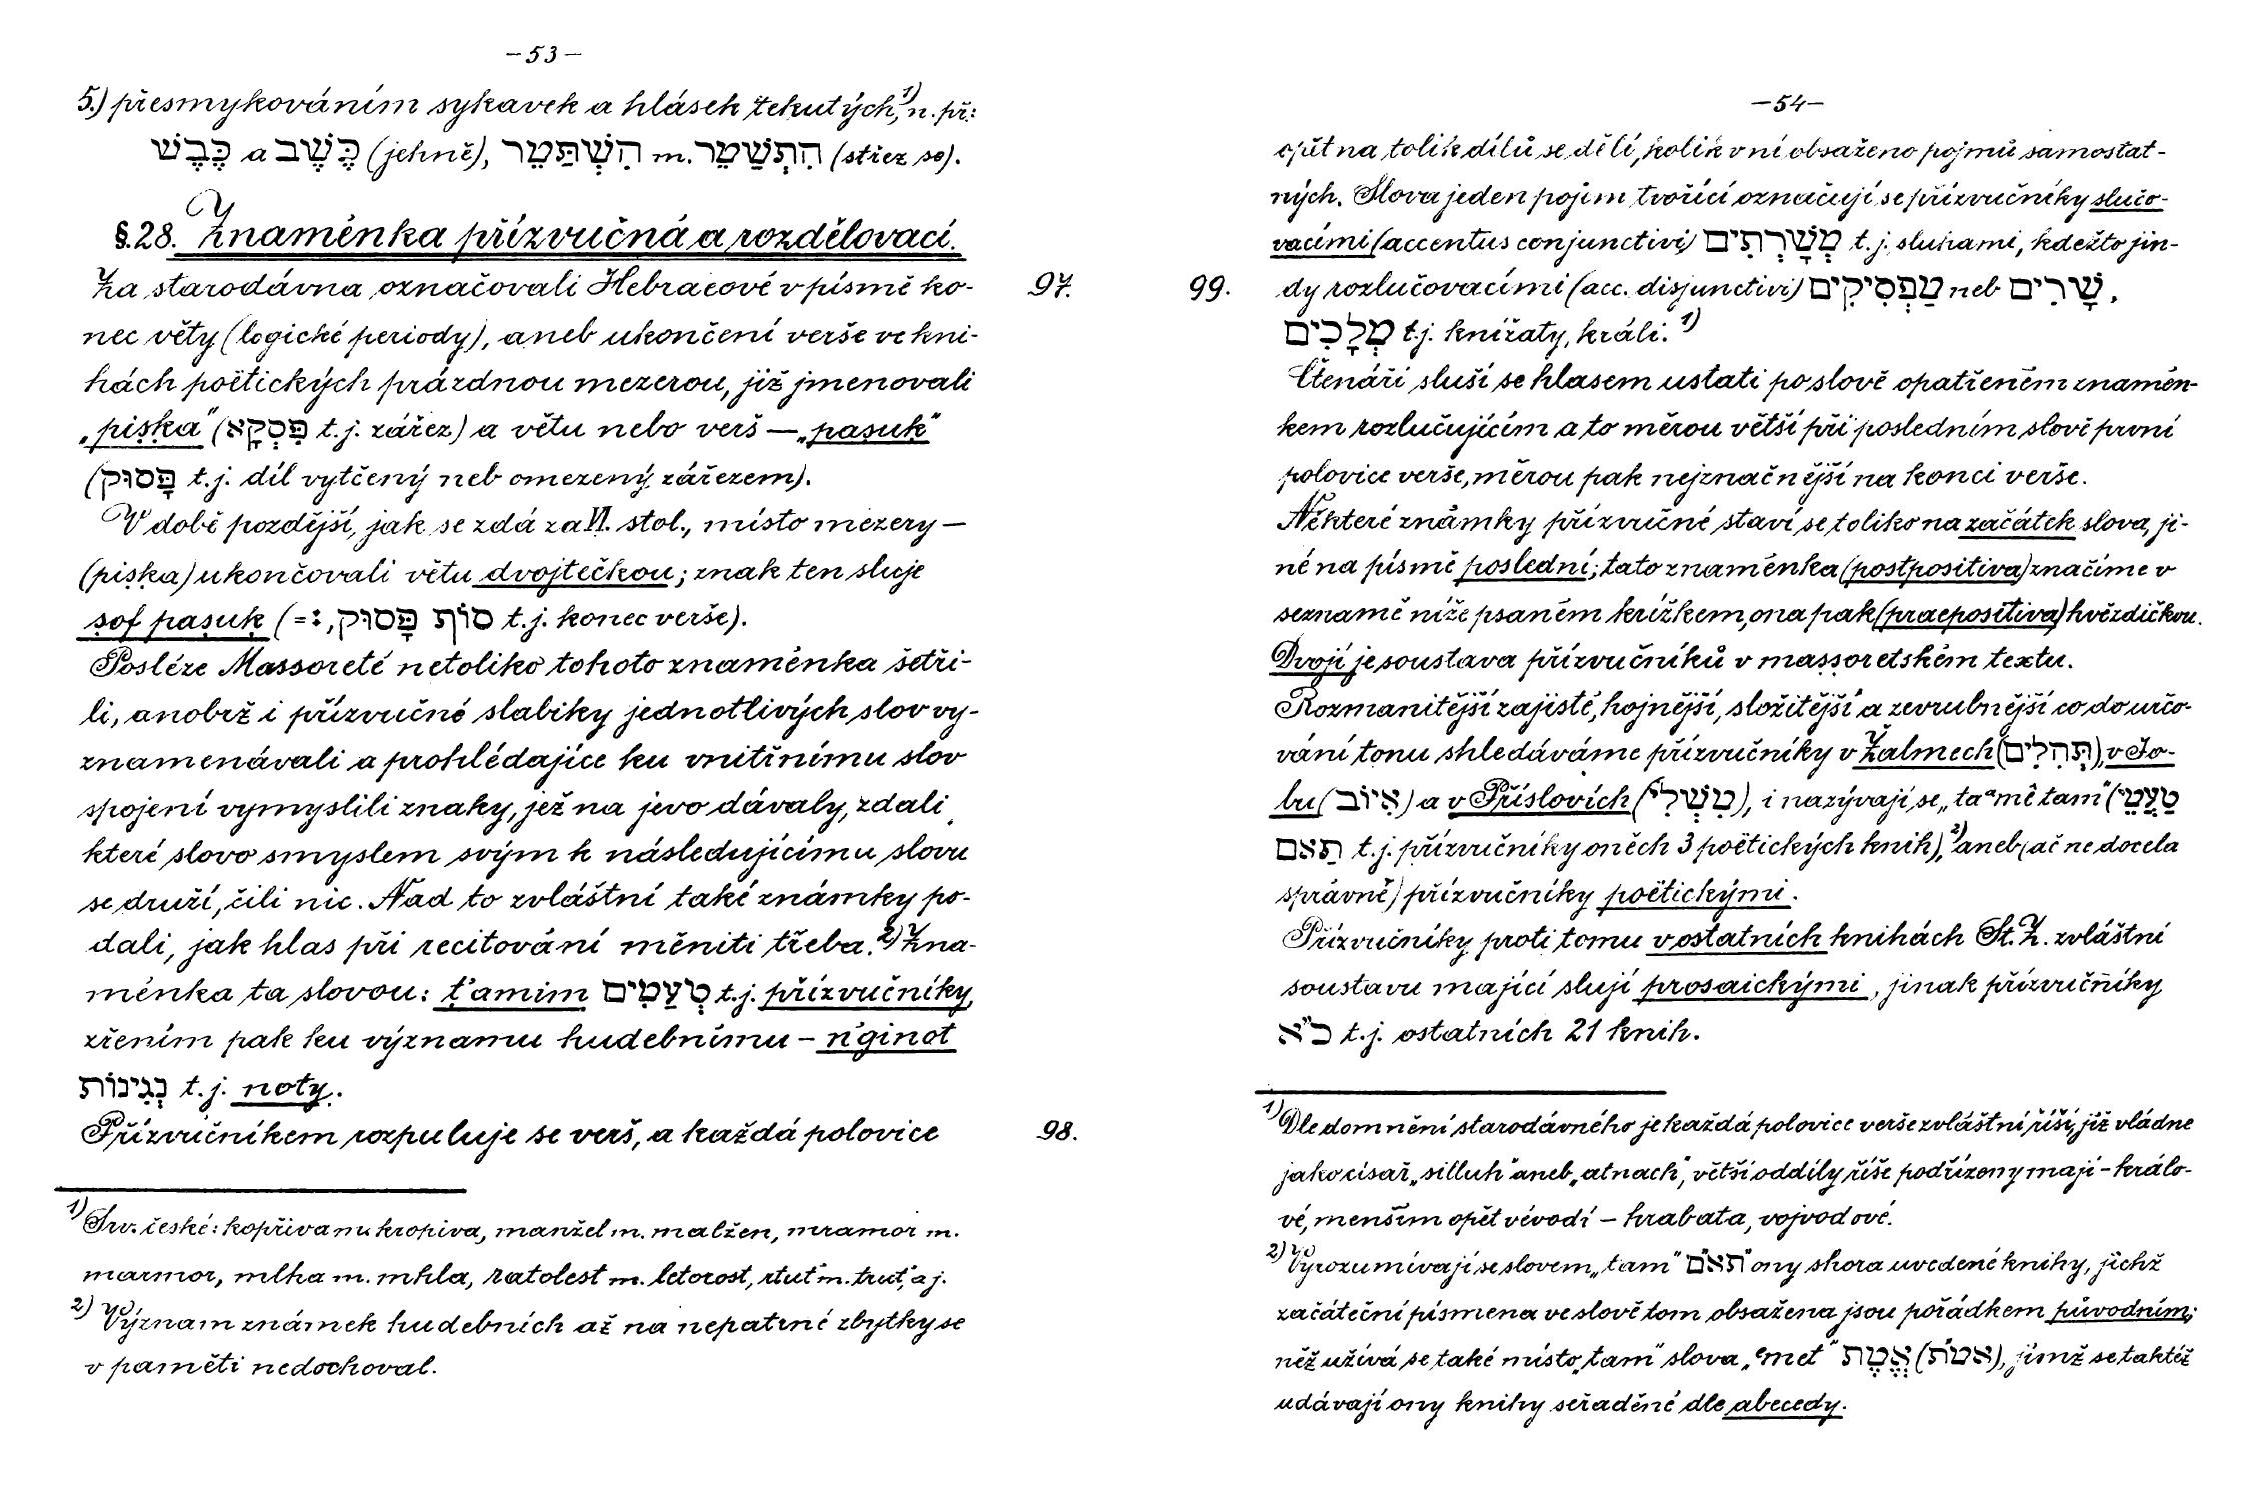 –53–
5.) přesmykováním sykavek a hlásek tekutých,¹⁾ n. př.:
כֶּבֶשׂ a כֶּשֶׂב (jehně), הִשְׁתַּטֵּר m. הִתְשַׁטֵּר (střez se).
§.28. Znaménka přízvučná a rozdělovací.
Za starodávna označovali Hebraeové v písmě ko- 97.
nec věty (logické periody), aneb ukončení verše ve kni-
hách poëtických prázdnou mezerou, již jmenovali
„pisḳa" (פִּסְקָא t.j. zářez) a větu nebo verš — „pasuk"
(פָּסוּק t.j. díl vytčený neb omezený zářezem).
V době pozdější, jak se zdá za VI. stol., místo mezery —
(piṣka) ukončovali větu dvojtečkou; znak ten sluje
ṣof paṣuḳ (=:, סוֹף פָּסוּק t.j. konec verše).
Posléze Massoreté netoliko tohoto znaménka šetři-
li, anobrž i přízvučné slabiky jednotlivých slov vy-
znamenávali a prohlédajíce ku vnitřnímu slov
spojení vymyslili znaky, jež na jevo dávaly, zdali
které slovo smyslem svým k následujícímu slovu
se druží, čili nic. Nad to zvláštní také známky po-
dali, jak hlas při recitování měniti třeba.²⁾ Zna-
ménka ta slovou: ṭ'amim טְעָמִים t.j. přízvučníky,
zřením pak ku významu hudebnímu – n'ginot
נְגִינוֹת t.j. noty.
Přízvučníkem rozpuluje se verš, a každá polovice 98.
¹⁾ Srv. české: kopřiva m. kropiva, manžel m. malžen, mramor m.
marmor, mlha m. mhla, ratolest m. letorost, rtuť m. truť, a j.
²⁾ Význam známek hudebních až na nepatrné zbytky se
v paměti nedochoval.
–54–
opět na tolik dílů se dělí, kolik v ní obsaženo pojmů samostat-
ných. Slova jeden pojem tvořící označují se přízvučníky slučo-
vacími (accentus conjunctivi) מְשָׁרְתִים t.j. sluhami, kdežto jin-
99. dy rozlučovacími (acc. disjunctivi) מַפְסִיקִים neb שָׂרִים,
מְלָכִים t.j. knížaty, králi.¹⁾
Čtenáři sluší se hlasem ustati po slově opatřeném znamén-
kem rozlučujícím a to měrou větší při posledním slově první
polovice verše, měrou pak nejznačnější na konci verše.
Některé známky přízvučné staví se toliko na začátek slova, ji-
né na písmě poslední; tato znaménka (postpositiva) značíme v
seznamě níže psaném křížkem, ona pak (praepositiva) hvězdičkou.
Dvojí je soustava přízvučníků v maṣṣoretském textu.
Rozmanitější zajisté, hojnější, složitější a zevrubnější co do určo-
vání tonu shledáváme přízvučníky v Žalmech (תְּהִלִּים), v Jo-
bu (אִיּוֹב) a v Příslovích (מִשְׁלֵי), i nazývají se „taᵃmê tam" (טַעֲמֵי
תַאם t.j. přízvučníky oněch 3 poëtických knih),²⁾ aneb (ač ne docela
správně) přízvučníky poëtickými.
Přízvučníky proti tomu v ostatních knihách St. Z. zvláštní
soustavu mající slují prosaickými, jinak přízvučníky
כ״א t.j. ostatních 21 knih.
¹⁾ Dle domnění starodávného je každá polovice verše zvláštní říší, již vládne
jako císař „silluk" aneb „atnach", větší oddíly říše podřízeny mají – králo-
vé, menším opět vévodí – hrabata, vojvodové.
²⁾ Vyrozumívají se slovem „tam" תאם ony shora uvedené knihy, jichž
začáteční písmena ve slově tom obsažena jsou pořádkem původním;
něž užívá se také místo „tam" slova „ᵉmet" אֱמֶת (אמת), jímž se taktéž
udávají ony knihy seřaděné dle abecedy.